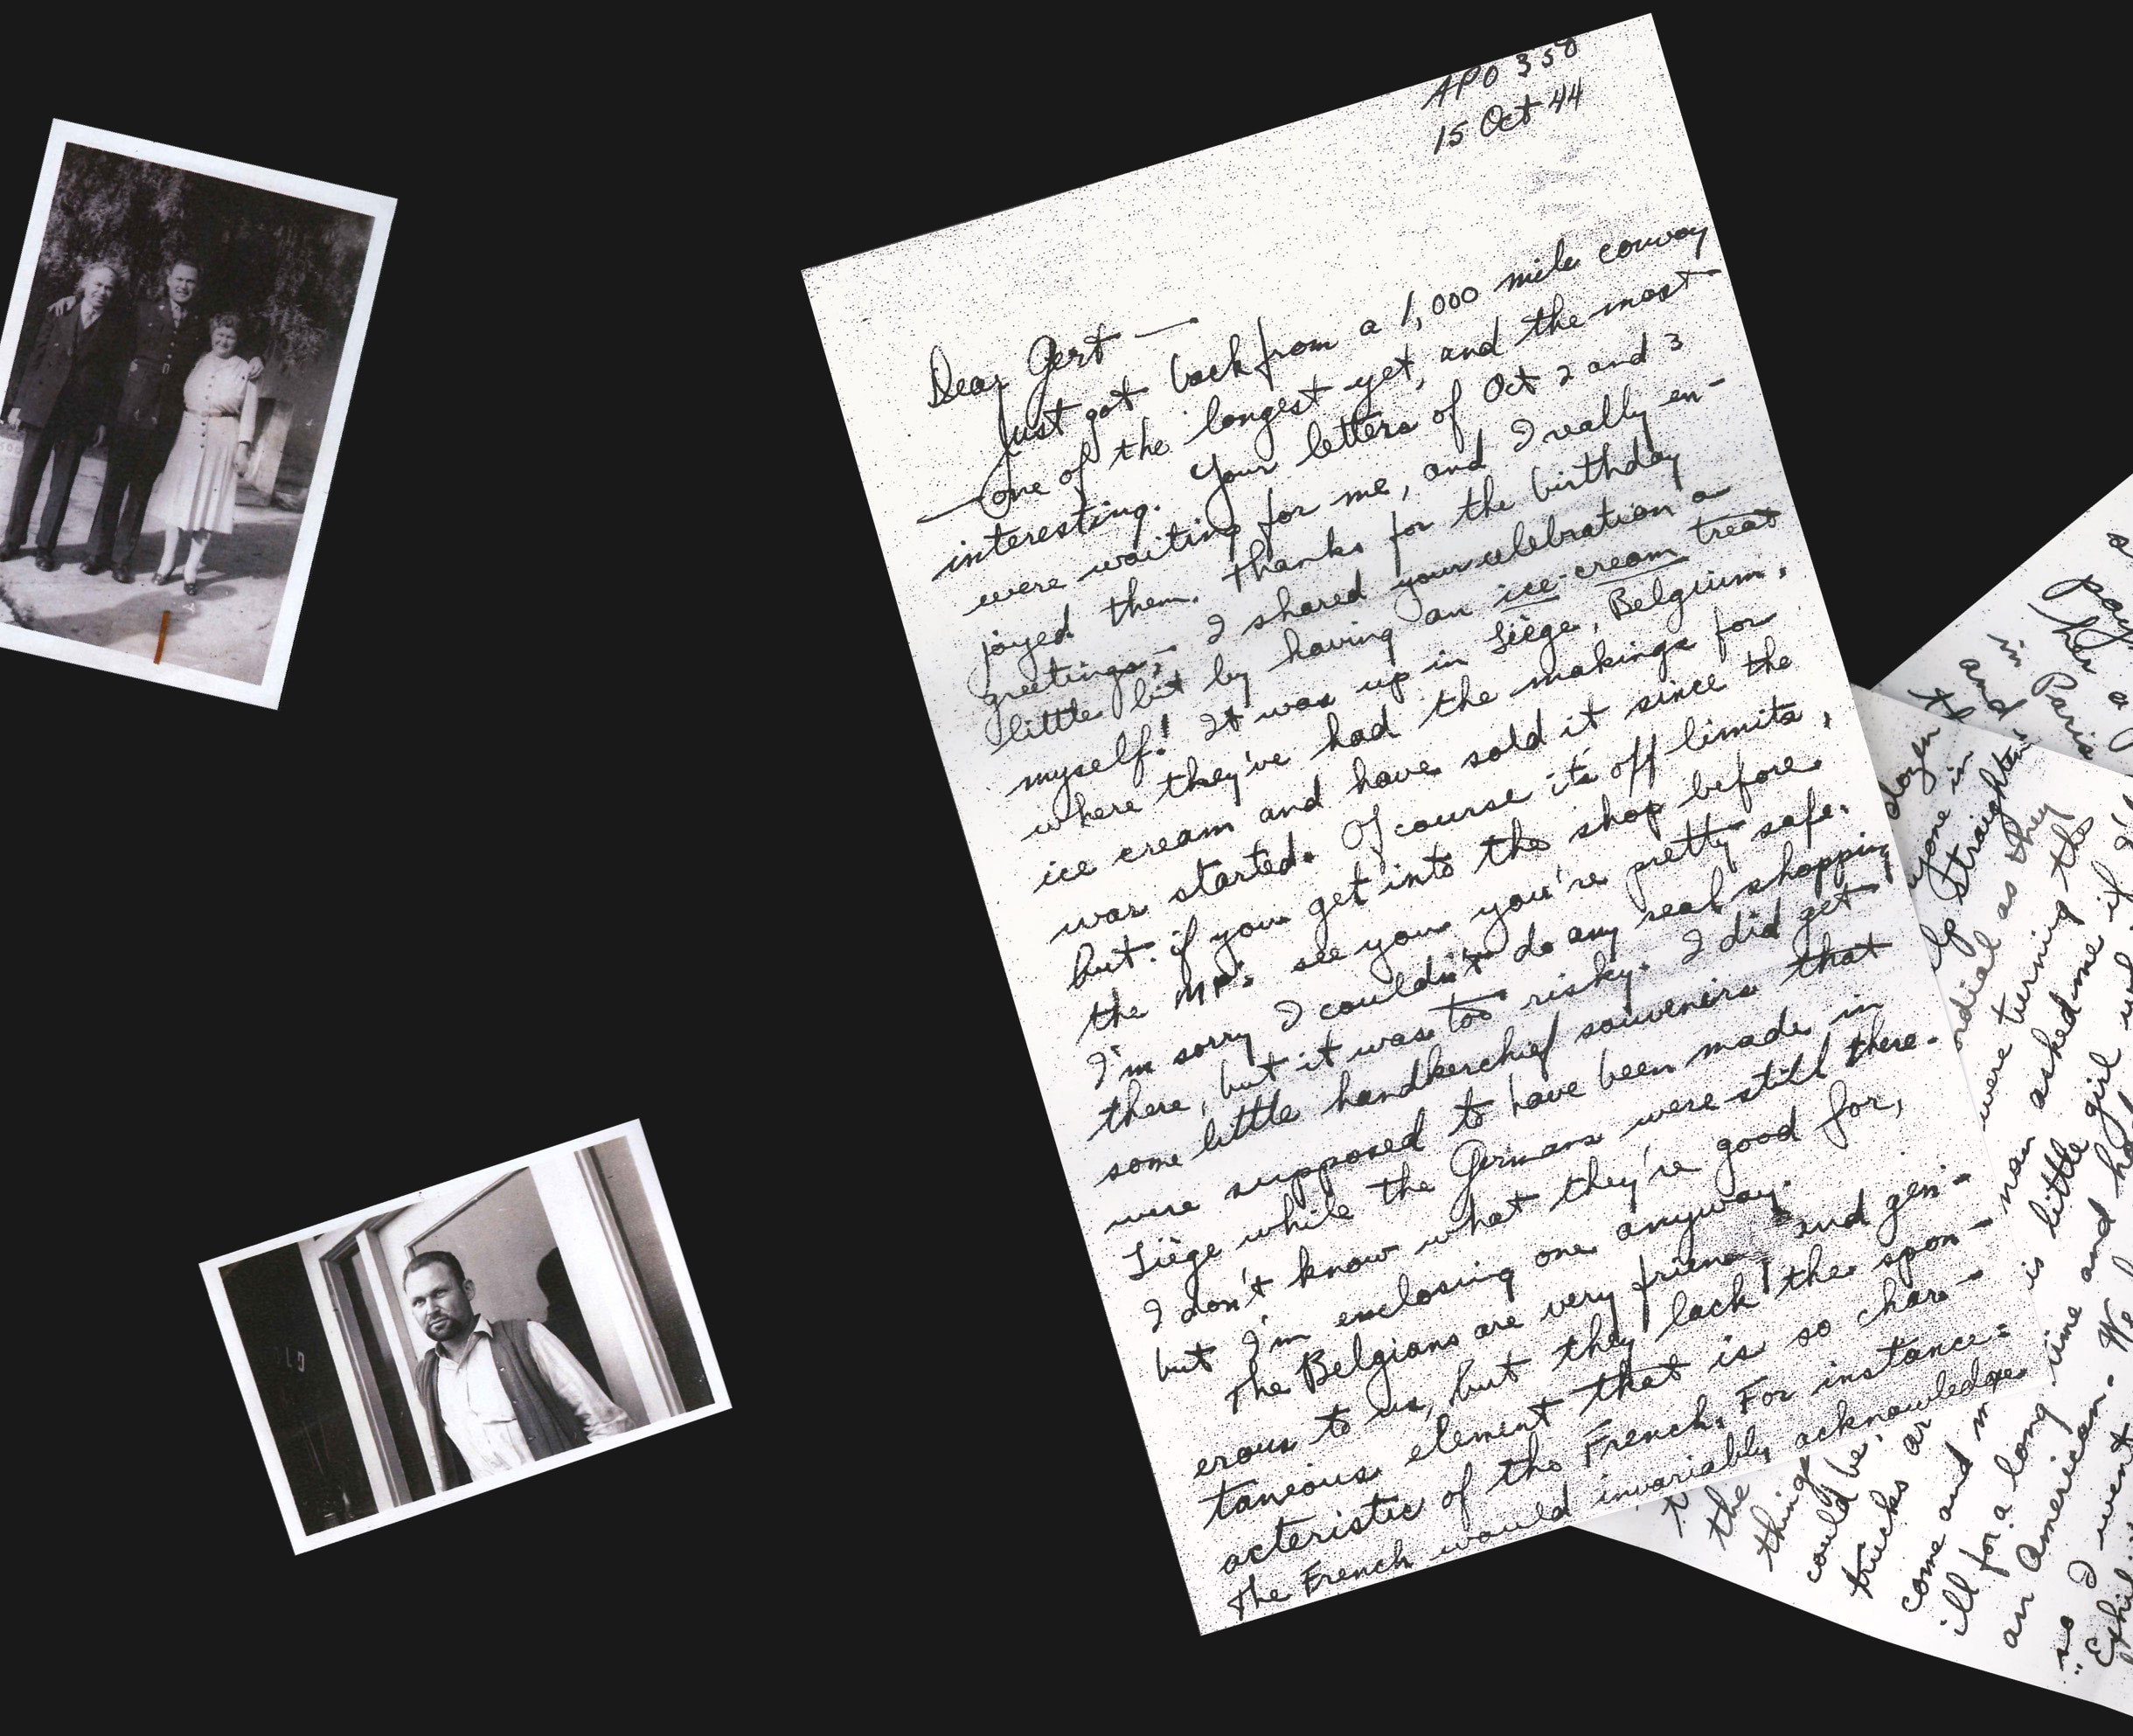 APO 358
15 Oct 44
Dear Gert —
Just got back from a 1,000 mile convoy
— one of the longest yet, and the most
interesting. Your letters of Oct 2 and 3
were waiting for me, and I really en-
joyed them. Thanks for the birthday
greetings; I shared your celebration a
little bit by having an ice cream treat
myself! It was up in Liège, Belgium,
where they've had the makings for
ice cream and have sold it since the
war started. Of course it's off limits,
but if you get into the shop before
the MP's see you you're pretty safe.
I'm sorry I couldn't do any real shopping
there, but it was too risky. I did get
some little handkerchief souvenirs that
were supposed to have been made in
Liège while the Germans were still there.
I don't know what they're good for,
but I'm enclosing one anyway.
The Belgians are very friend and gen-
erous to us, but they lack the spon-
taneous element that is so char-
acteristic of the French. For instance:
The French would invariably acknowledge
a
pay
her a
Paris
in
and
dozen
yone in
lp straighten
ordial as they
were turning the
man asked me if I'
is little girl
time and
the
things
could be.
trucks ar
come and m
ill for a long
an American. We
so I went